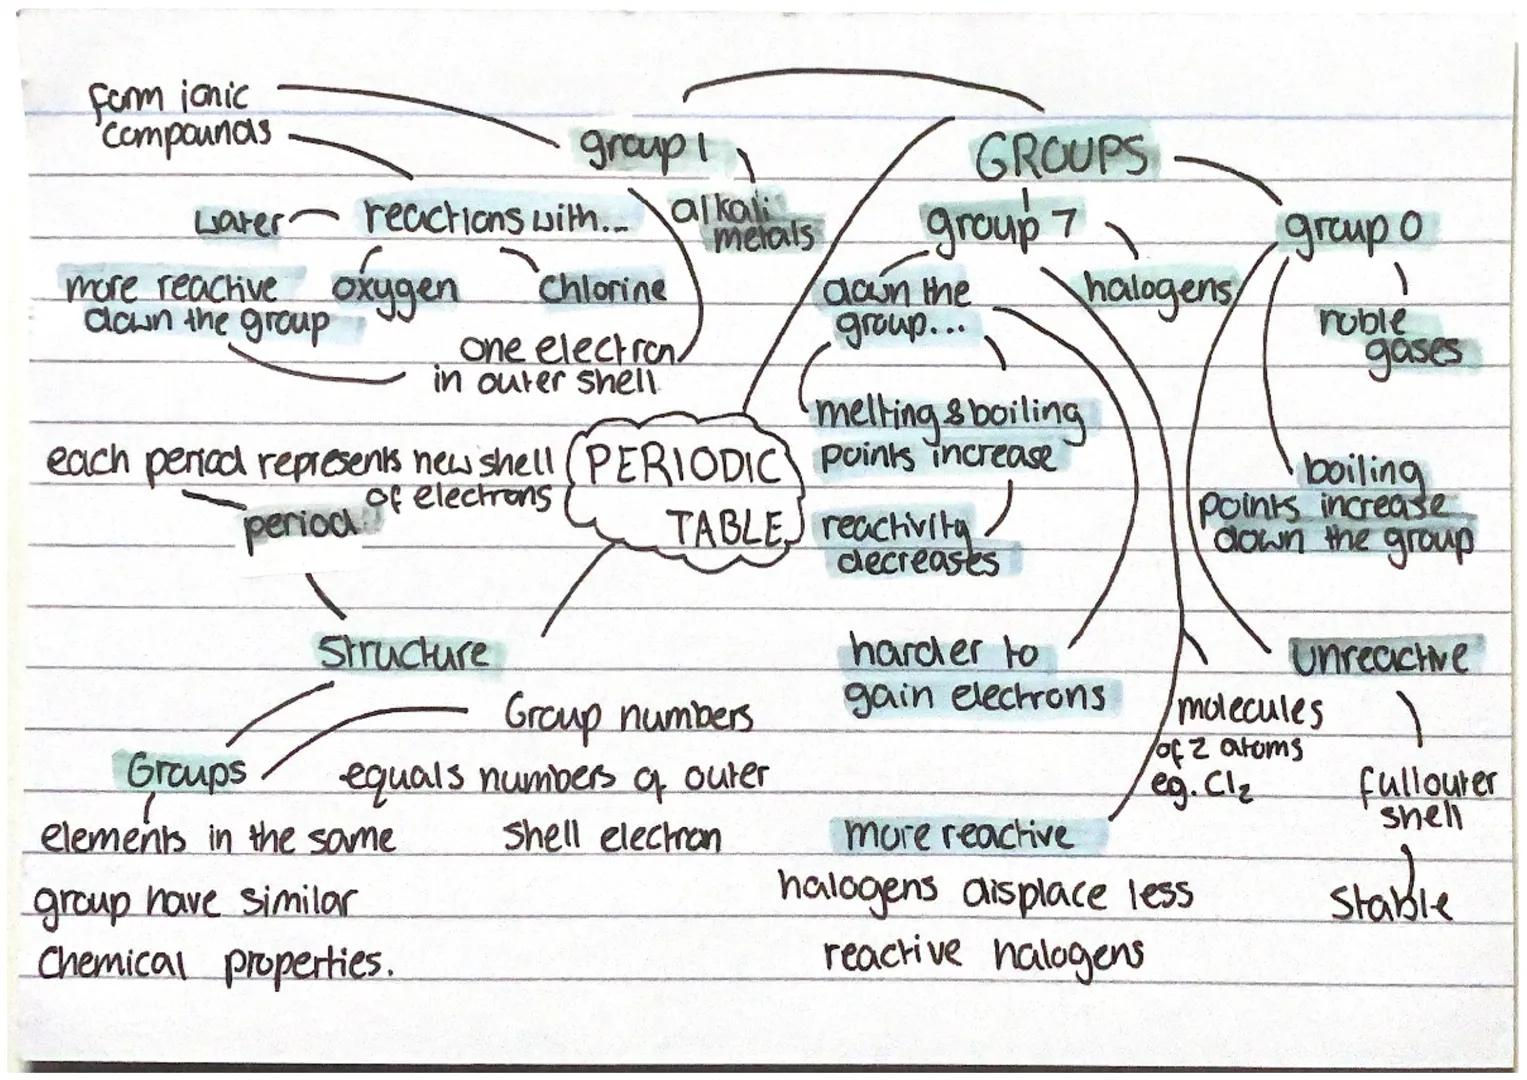 form ionic
compounds
group 1
alkali
metals
water
reactions with...
oxygen
chlorine
more reactive
down the group
one electron
in outer shell
GROUPS
group 7
halogens
down the
group...
melting & boiling
points increase
reactivity
decreases
harder to
gain electrons
molecules
of 2 atoms
eg. Cl2
more reactive
halogens displace less
reactive halogens
group 0
noble
gases
boiling
points increase
down the group
unreactive
full outer
shell
stable
PERIODIC
TABLE
each period represents new shell
of electrons
period
Structure
Groups
Group numbers
equals numbers of outer
shell electron
elements in the same
group have similar
chemical properties.